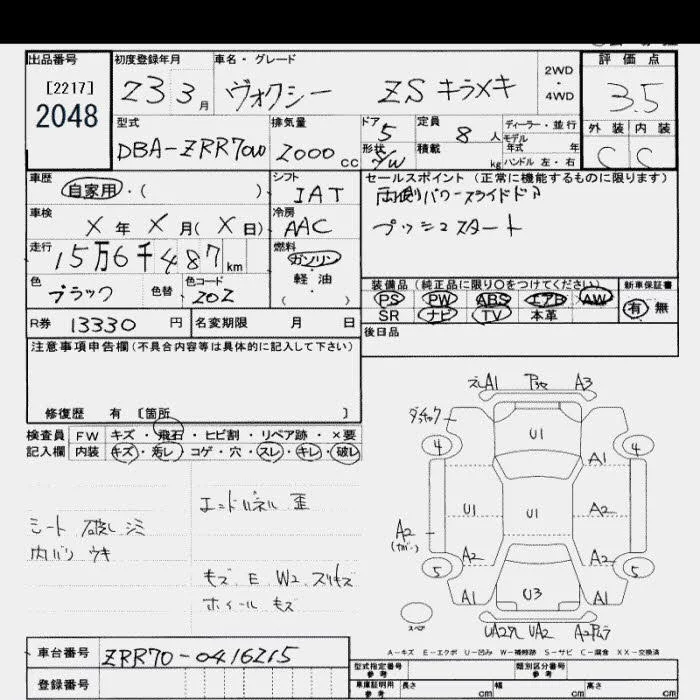 出品番号
[2217]
2048
初度登録年月
23 3月
車名・グレード
ヴォクシー ZS キラメキ
2WD
・
4WD
評価点
3.5
外装 内装
C C
型式
DBA-ZRR70W
排気量
2000cc
ドア
5
形状
S/W
定員
8人
積載
kg
ディーラー・並行
モデル
年式 年
ハンドル 左・右
車歴
自家用・( )
シフト
IAT
セールスポイント(正常に機能するものに限ります)
両側パワースライドドア
プッシュスタート
車検
X年X月(X日)
冷房
AAC
走行
15万6千487km
燃料
ガソリン
・
軽油
( )
色
ブラック
色替
色コード
202
装備品(純正品に限り○をつけてください)
PS PW ABS エアB AW
SR ナビ TV 本革
新車保証書
有 無
R券 13330円
名変期限 月 日
後日品
注意事項申告欄(不具合内容等は具体的に記入して下さい)
修復歴 有 [箇所 ]
検査員
記入欄
FW キズ・飛石・ヒビ割・リペア跡・×要
内装 キズ・汚レ・コゲ・穴・スレ・キレ・破レ
エンドパネル 歪
シート 破レ シミ
内バリ ウキ
キズ E W2 スリキズ
ホイール キズ
A1 A3
4 U1 4
A1
U1 U1 A2
A2
A2 A2
5 5
A1 U3 A1
スペア
UA2 UA2 A2
A-キズ E-エクボ U-凹み W-補修跡 S-サビ C-腐食 XX-交換済
車台番号
ZRR70-0416215
登録番号
型式指定番号
参考
類別区分番号
参考
車庫証明用
参考
長さ cm 幅 cm 高さ cm